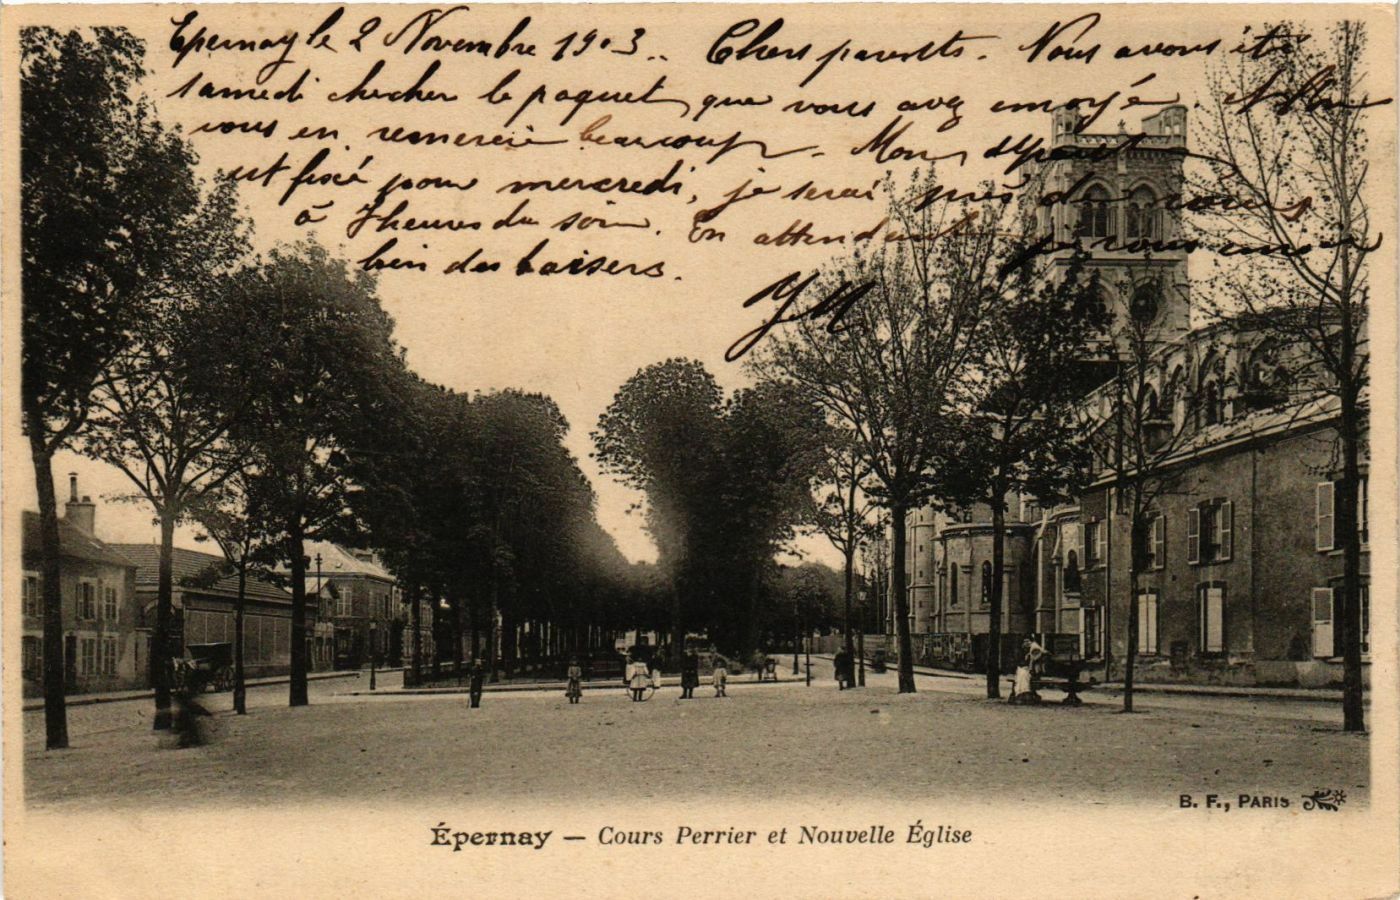 Epernay le 2 Novembre 1903.. Chers parents. Nous avons été
samedi chercher le paquet que vous avez envoyé. et Nous
vous en remercie beaucoup. Mon départ
est fixé pour mercredi, je serai près de vous
à 7 heures du soir. En attendant je vous envoie
bien des baisers.
YM
B. F., PARIS
Épernay — Cours Perrier et Nouvelle Église